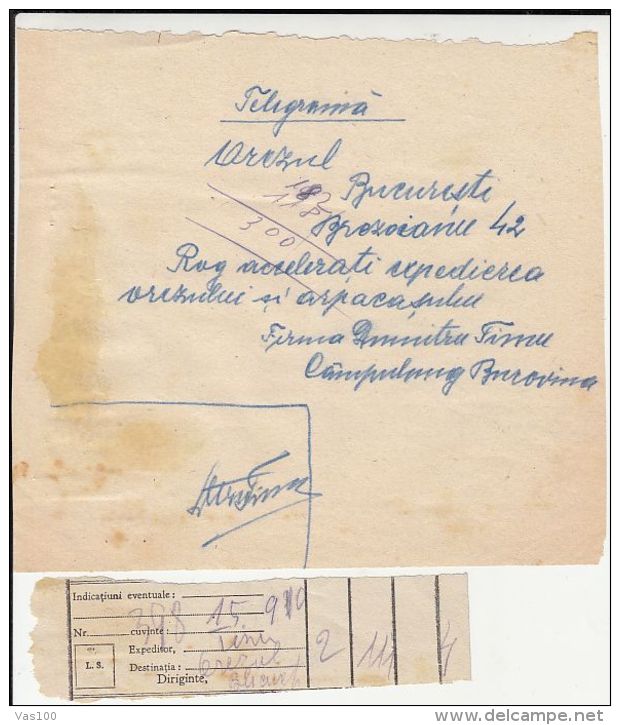 Telegramă
Orezul
București
Brezoianu 42
300
Rog accelerați expedierea
orezului și arpacașului
Firma Dumitru Timu
Câmpulung Bucovina
Indicațiuni eventuale :
Nr. 398 cuvinte : 15 910
Expeditor, Timu
L. S. Destinația : Orezul
Diriginte, 2 111 4
Vas100
www.delcampe.net